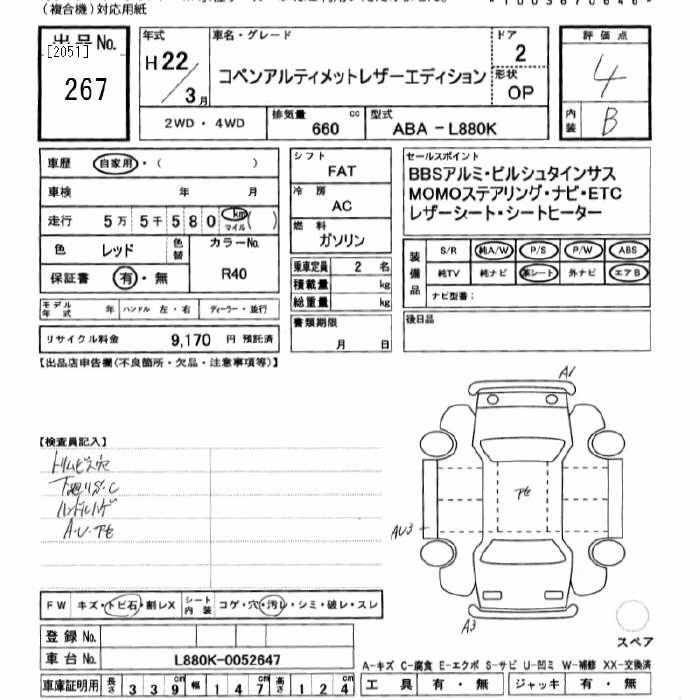 (複合機)対応用紙
*1003670646*
出品No.
[2051]
267
年式
H22/3月
車名・グレード
コペンアルティメットレザーエディション
ドア
2
形状
OP
評価点
4
内装
B
2WD・4WD
排気量 660 cc
型式 ABA-L880K
車歴 自家用・( )
車検 年 月
走行 5万5千580 km マイル ( )
色 レッド 色替
カラーNo.
R40
保証書 有・無
モデル年式 年 ハンドル 左・右 ディーラー・並行
リサイクル料金 9,170 円 預託済
シフト
FAT
冷房
AC
燃料
ガソリン
乗車定員 2 名
積載量 kg
総重量 kg
書類期限
月 日
セールスポイント
BBSアルミ・ビルシュタインサス
MOMOステアリング・ナビ・ETC
レザーシート・シートヒーター
装備品
S/R 純A/W P/S P/W ABS
純TV 純ナビ 革シート 外ナビ エアB
ナビ型番:
後日品
【出品店申告欄(不良箇所・欠品・注意事項等)】
【検査員記入】
トリムビス穴
下廻りS・C
ハンドルハゲ
A・U・下モ
A1
AU3
A3
スペア
FW キズ・トビ石・割レX
シート内装 コゲ・穴・汚レ・シミ・破レ・スレ
登録No.
車台No. L880K-0052647
車庫証明用 長さ 339cm 幅 147cm 高さ 124cm
A-キズ C-腐食 E-エクボ S-サビ U-凹ミ W-補修 XX-交換済
工具 有・無 ジャッキ 有・無